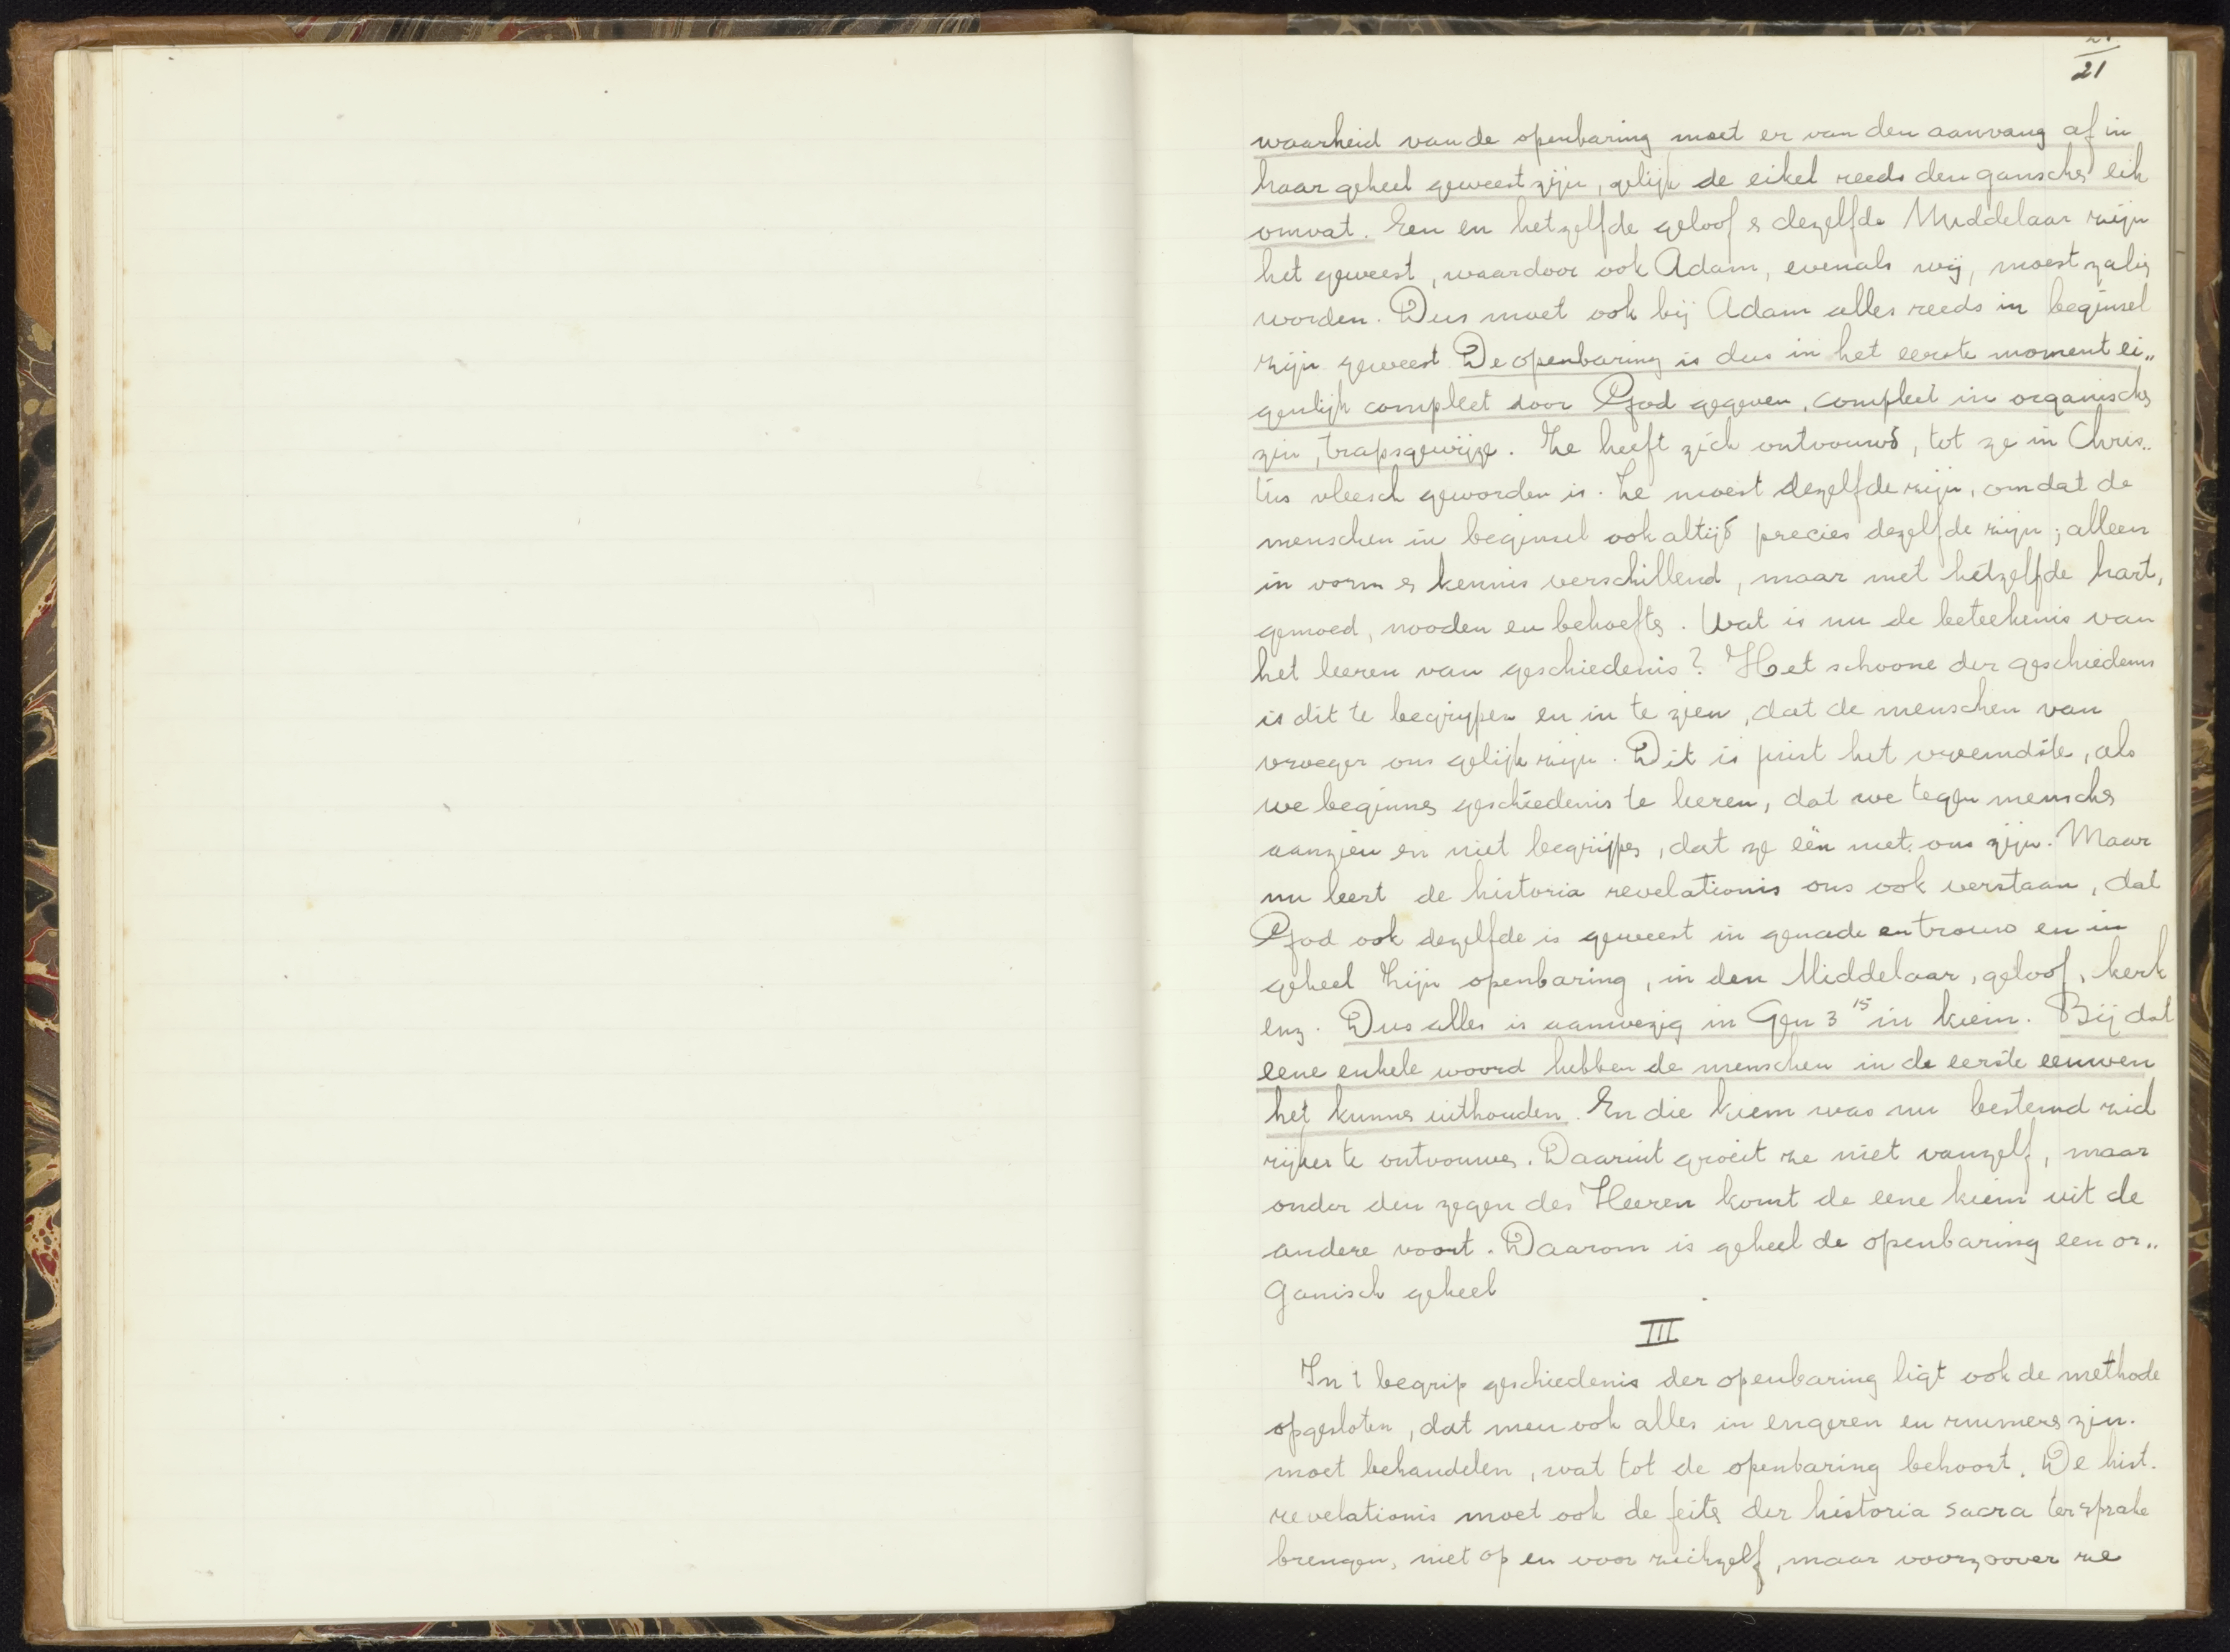 21
waarheid van de openbaring moet er van den aanvang af in
haar geheel geweest zijn, gelijk de eikel reeds den ganschen eik
omvat. Een en hetzelfde geloof & dezelfde Middelaar zijn
het geweest, waardoor ook Adam, evenals wij, moest zalig
worden. Dus moet ook bij Adam alles reeds in beginsel
zijn geweest. De openbaring is dus in het eerste moment ei„
genlijk compleet door God gegeven, compleet in organischen
zin, trapsgewijze. Ze heeft zich ontvouwd, tot ze in Chris„
tus vleesch geworden is. Ze moest dezelfde zijn, omdat de
menschen in beginsel ook altijd precies dezelfde zijn; alleen
in vorm & kennis verschillend, maar met hetzelfde hart,
gemoed, nooden en behoeften. Wat is nu de beteekenis van
het leeren van geschiedenis? Het schoone der geschiedenis
is dit te begrijpen en in te zien, dat de menschen van
vroeger ons gelijk zijn. Dit is juist het vreemdste, als
we beginnen geschiedenis te leeren, dat we tegen menschen
aanzien en niet begrijpen, dat ze één met ons zijn. Maar
nu leert de historia revelationis ons ook verstaan, dat
God ook dezelfde is geweest in genade en trouw en in
geheel Zijn openbaring, in den Middelaar, geloof, kerk
enz. Dus alles is aanwezig in Gen 3 15 in kiem. Bij dat
eene enkele woord hebben de menschen in de eerste eeuwen
het kunnen uithouden. En die kiem was nu bestemd zich
rijker te ontvouwen. Daaruit groeit ze niet vanzelf, maar
onder den zegen des Heeren komt de eene kiem uit de
andere voort. Daarom is geheel de openbaring een or„
ganisch geheel
III
In 't begrip geschiedenis der openbaring ligt ook de methode
opgesloten, dat men ook alles in engeren en ruimeren zin.
moet behandelen, wat tot de openbaring behoort. De hist.
revelationis moet ook de feiten der historia sacra ter sprake
brengen, niet op en voor zichzelf, maar voorzoover ze